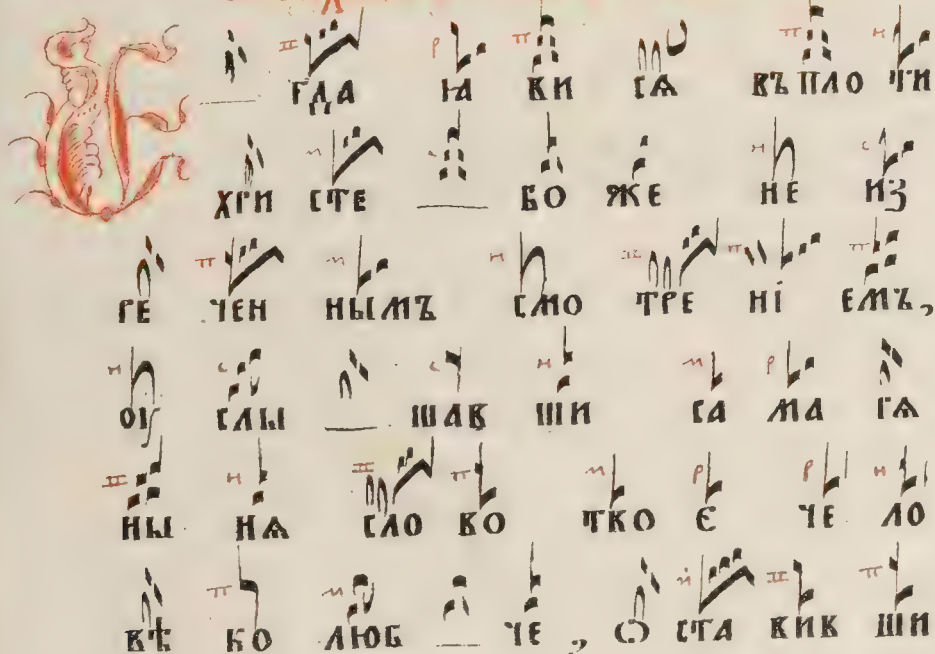 Е гда ꙗ ви сѧ въ пло ти
хри сте бо же не из
ре чен нымъ смо тре ні емъ,
оу слы шав ши са ма рѧ
ны нѧ сло во тво є че ло
вѣ ко люб че , ѡ ста вив ши